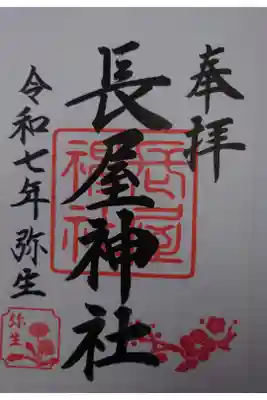 奉拝
長屋神社
長屋神社
令和七年 弥生
弥生